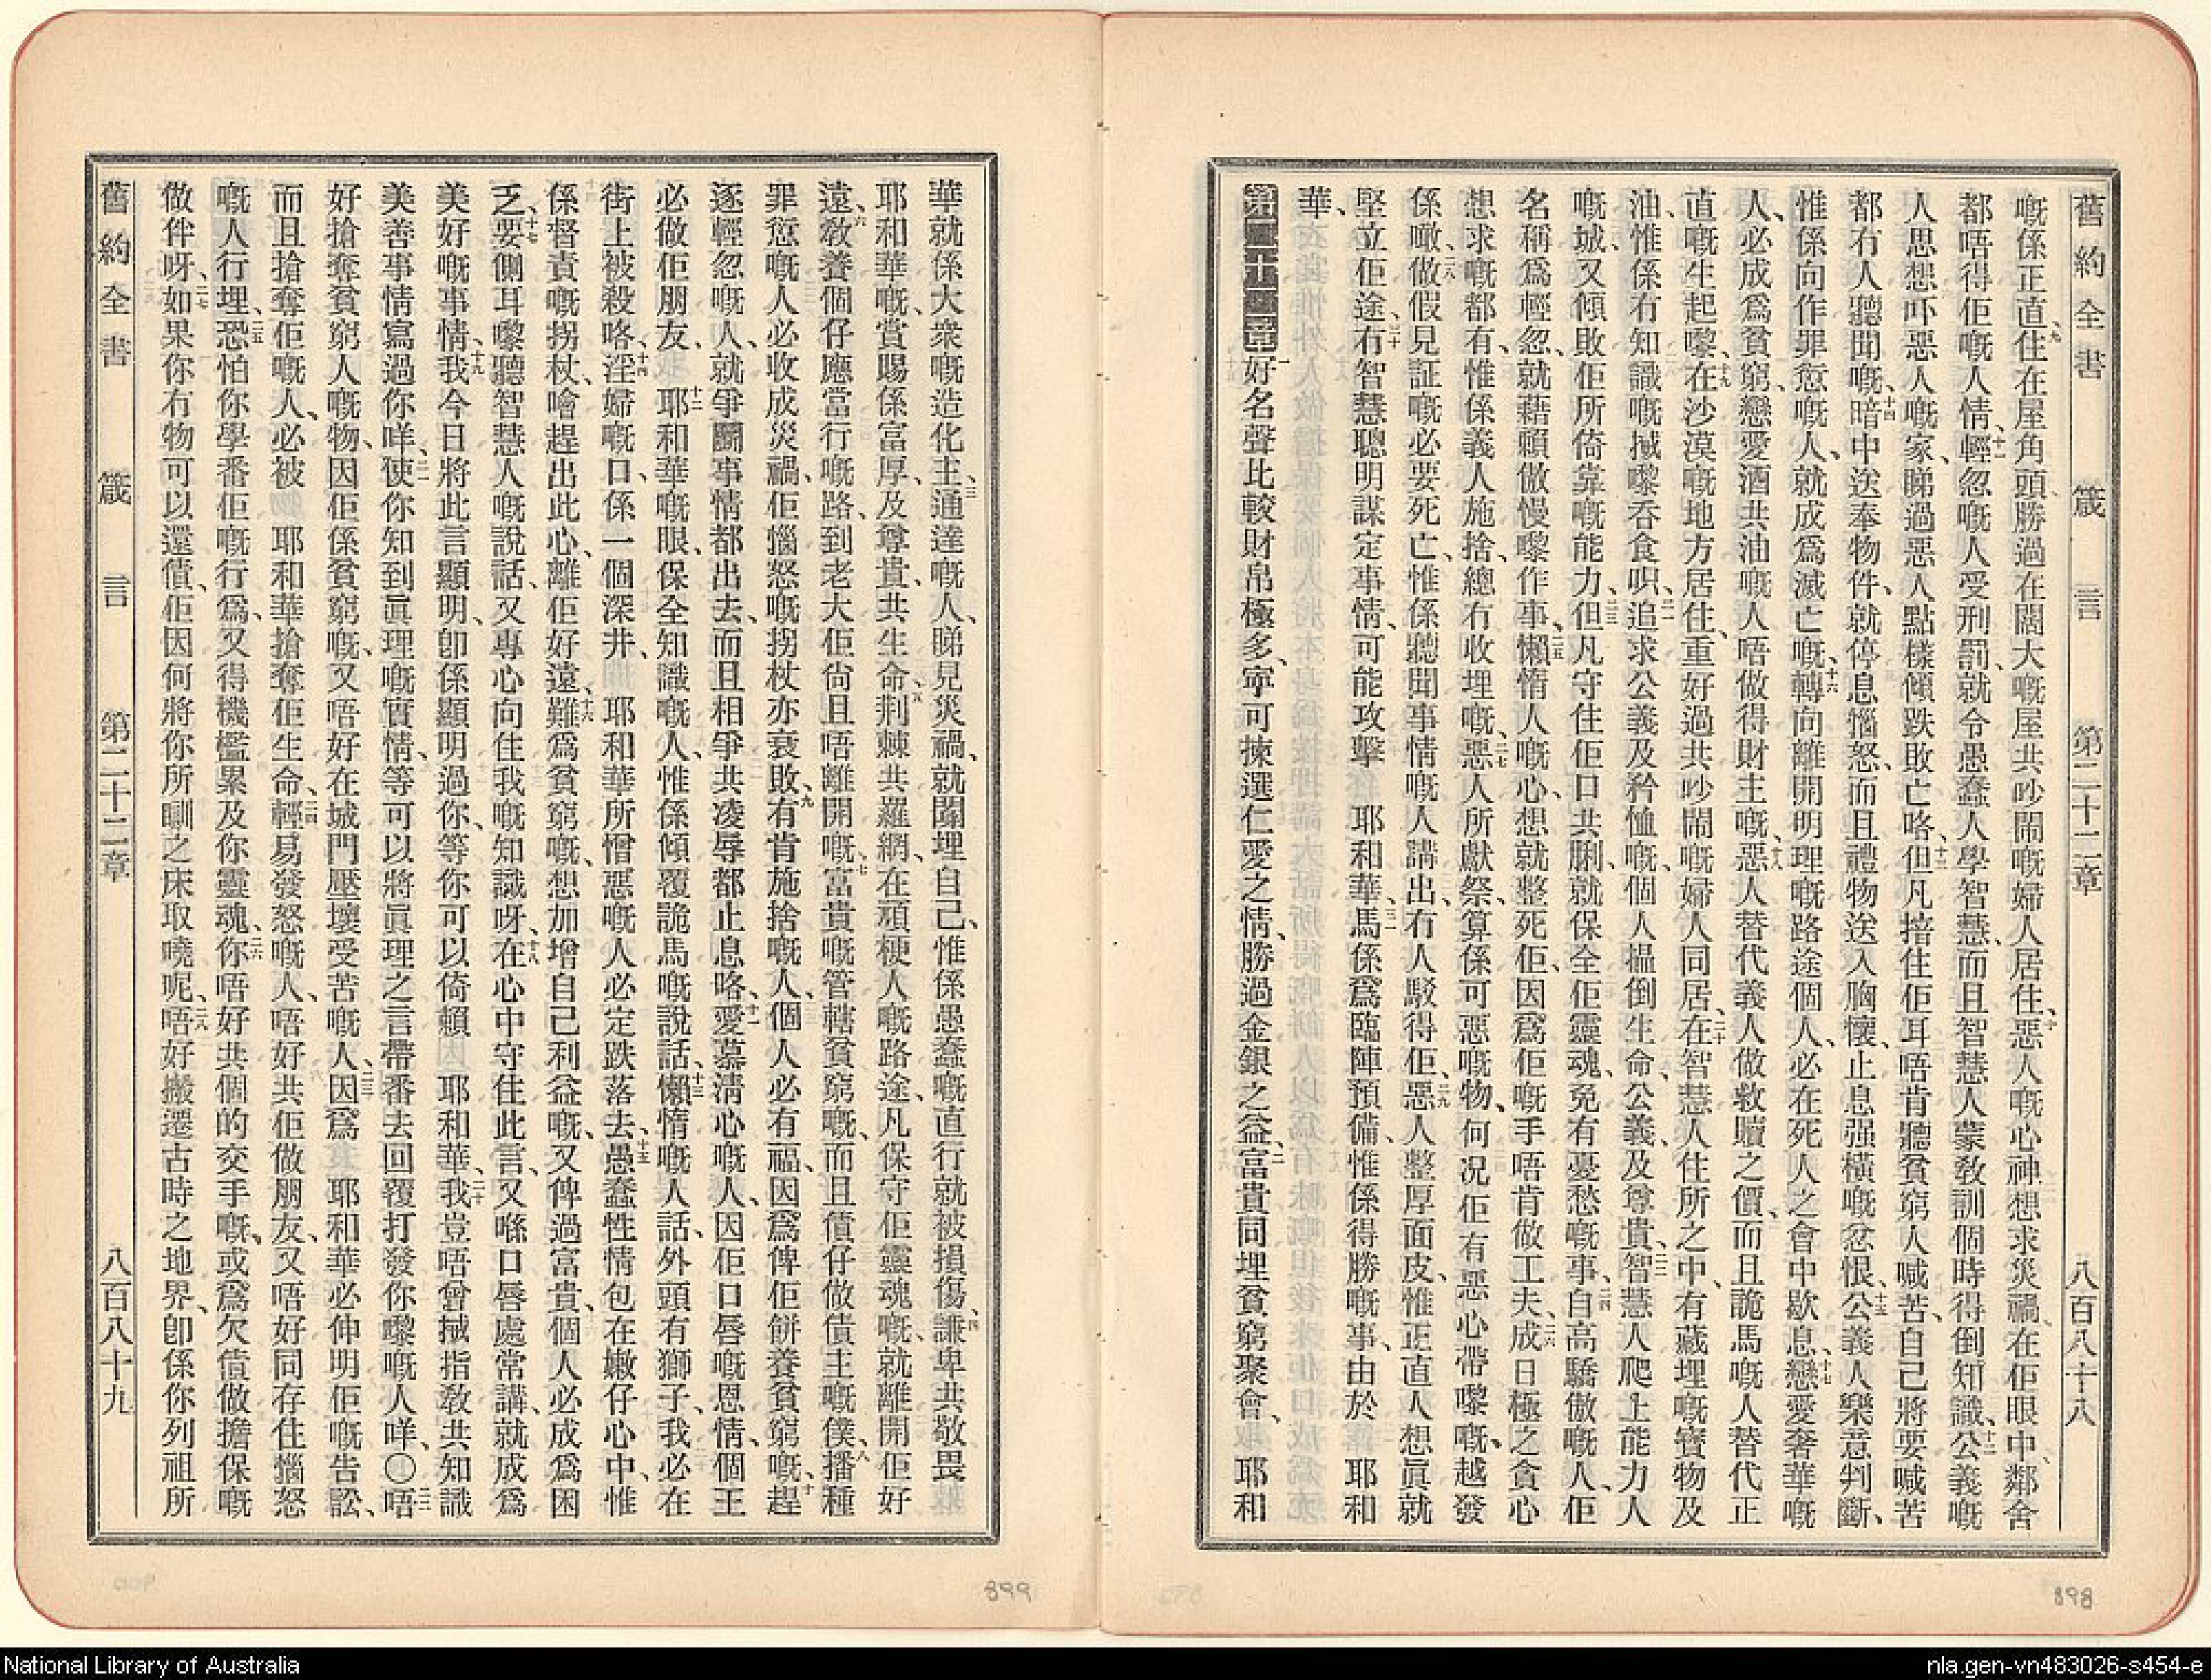 舊約全書 箴言 第二十二章 八百八十八
嘅係正直、九住在屋角頭、勝過在闊大嘅屋共吵鬧嘅婦人居住、十惡人嘅心神想求災禍、在佢眼中、鄰舍
都唔得佢嘅人情、十一輕忽嘅人受刑罰、就令愚蠢人學智慧、而且智慧人蒙教訓、個時得倒知識、十二公義嘅
人思想吓惡人嘅家、睇過惡人點樣傾跌敗亡咯、十三但凡掊住佢耳唔肯聽貧窮人喊苦、自己將要喊苦
都冇人聽聞嘅、十四暗中送奉物件、就停息惱怒、而且禮物送入胸懷、止息强橫嘅忿恨、十五公義人樂意判斷、
惟係向作罪愆嘅人、就成爲滅亡嘅、十六轉向離開明理嘅路途個人、必在死人之會中歇息、十七戀愛奢華嘅
人、必成爲貧窮、戀愛酒共油嘅人唔做得財主嘅、十八惡人替代義人做救贖之價、而且詭馬嘅人替代正
直嘅生起嚟、十九在沙漠嘅地方居住、重好過共吵鬧嘅婦人同居、二十在智慧人住所之中、有藏埋嘅寶物及
油、惟係有知識嘅搣嚟吞食呮、二一追求公義及矜恤嘅、個人揾倒生命、公義、及尊貴、二二智慧人爬上能力人
嘅城、又傾敗佢所倚靠嘅能力、二三但凡守住佢口共脷、就保全佢靈魂、免有憂愁嘅事、二四自高驕傲嘅人、佢
名稱爲輕忽、就藉賴傲慢嚟作事、二五懶惰人嘅心想就整死佢、因爲佢嘅手唔肯做工夫、二六成日極之貪心
想求嘅都有、惟係義人施捨、總有收埋嘅、二七惡人所獻祭、算係可惡嘅物、何況佢有惡心帶嚟嘅、越發
係噉、二八做假見証嘅必要死亡、惟係聽聞事情嘅人講出、冇人駁得佢、二九惡人整厚面皮、惟正直人想眞就
堅立佢途、三十冇智慧聰明謀定事情、可能攻擊 耶和華、三一馬係爲臨陣預備、惟係得勝嘅事、由於 耶和
華、
第二十二章 一好名聲比較財帛極多、寧可揀選仁愛之情、勝過金銀之益、二富貴同埋貧窮聚會、 耶和
華就係大衆嘅造化主、三通達嘅人、睇見災禍、就閣埋自己、惟係愚蠢嘅直行就被損傷、四謙卑共敬畏
耶和華嘅、賞賜係富厚、及尊貴、共生命、五荆棘共羅網、在頑梗人嘅路途、凡保守佢靈魂嘅、就離開佢好
遠、六敎養個仔應當行嘅路、到老大佢尙且唔離開嘅、七富貴嘅管轄貧窮嘅、而且債仔做債主嘅僕、八播種
罪愆嘅人必收成災禍、佢惱怒嘅拐杖亦衰敗、九有肯施捨嘅人、個人必有福、因爲俾佢餅養貧窮嘅、十趕
逐輕忽嘅人、就爭鬭事情都出去、而且相爭共凌辱都止息咯、十一愛慕淸心嘅人、因佢口唇嘅恩情、個王
必做佢朋友、十二 耶和華嘅眼、保全知識嘅人、惟係傾覆詭馬嘅說話、十三懶惰嘅人話、外頭有獅子、我必在
街上被殺咯、十四淫婦嘅口、係一個深井、 耶和華所憎惡嘅人必定跌落去、十五愚蠢性情包在嫩仔心中、惟
係督責嘅拐杖、噲趕出此心、離佢好遠、十六難爲貧窮嘅、想加增自己利益嘅、又俾過富貴、個人必成爲困
乏、十七要側耳嚟聽智慧人嘅說話、又專心向住我嘅知識呀、十八在心中守住此言、又喺口唇處常講、就成爲
美好嘅事情、十九我今日將此言顯明、卽係顯明過你、等你可以倚賴 耶和華、二十我豈唔曾搣指敎共知識
美善事情寫過你咩、二一使你知到眞理嘅實情、等可以將眞理之言、帶番去回覆打發你嚟嘅人咩、〇二二唔
好搶奪貧窮人嘅物、因佢係貧窮嘅、又唔好在城門壓壞受苦嘅人、二三因爲 耶和華必伸明佢嘅告訟、
而且搶奪佢嘅人、必被 耶和華搶奪佢生命、二四輕易發怒嘅人、唔好共佢做朋友、又唔好同存住惱怒
嘅人行埋、二五恐怕你學番佢嘅行爲、又得機檻累及你靈魂、二六你唔好共個的交手嘅、或爲欠債做擔保嘅
做伴呀、二七如果你冇物可以還債、佢因何將你所瞓之床取曉呢、二八唔好搬遷古時之地界、卽係你列祖所
舊約全書 箴言 第二十二章 八百八十九
899
898
National Library of Australia
nla.gen-vn483026-s454-e